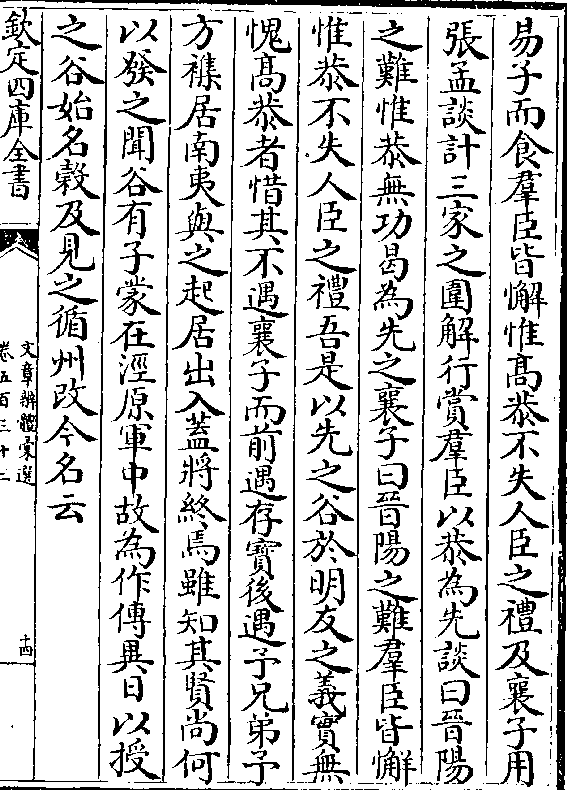 易子而食羣臣皆懈惟髙恭不失人臣之禮及襄子用
張孟談計三家之圍解行賞羣臣以恭為先談曰晉陽
之難惟恭無功曷為先之襄子曰晉陽之難羣臣皆懈
惟恭不失人臣之禮吾是以先之谷於朋友之義實無
愧髙恭者惜其不遇襄子而前遇存寶後遇予兄弟予
方襍居南夷與之起居出入蓋將終焉雖知其賢尚何
以發之聞谷有子蒙在涇原軍中故為作傳異日以授
之谷始名榖及見之循州改今名云
欽定四庫全書
文章辨體彚選
卷五百三十二
十四